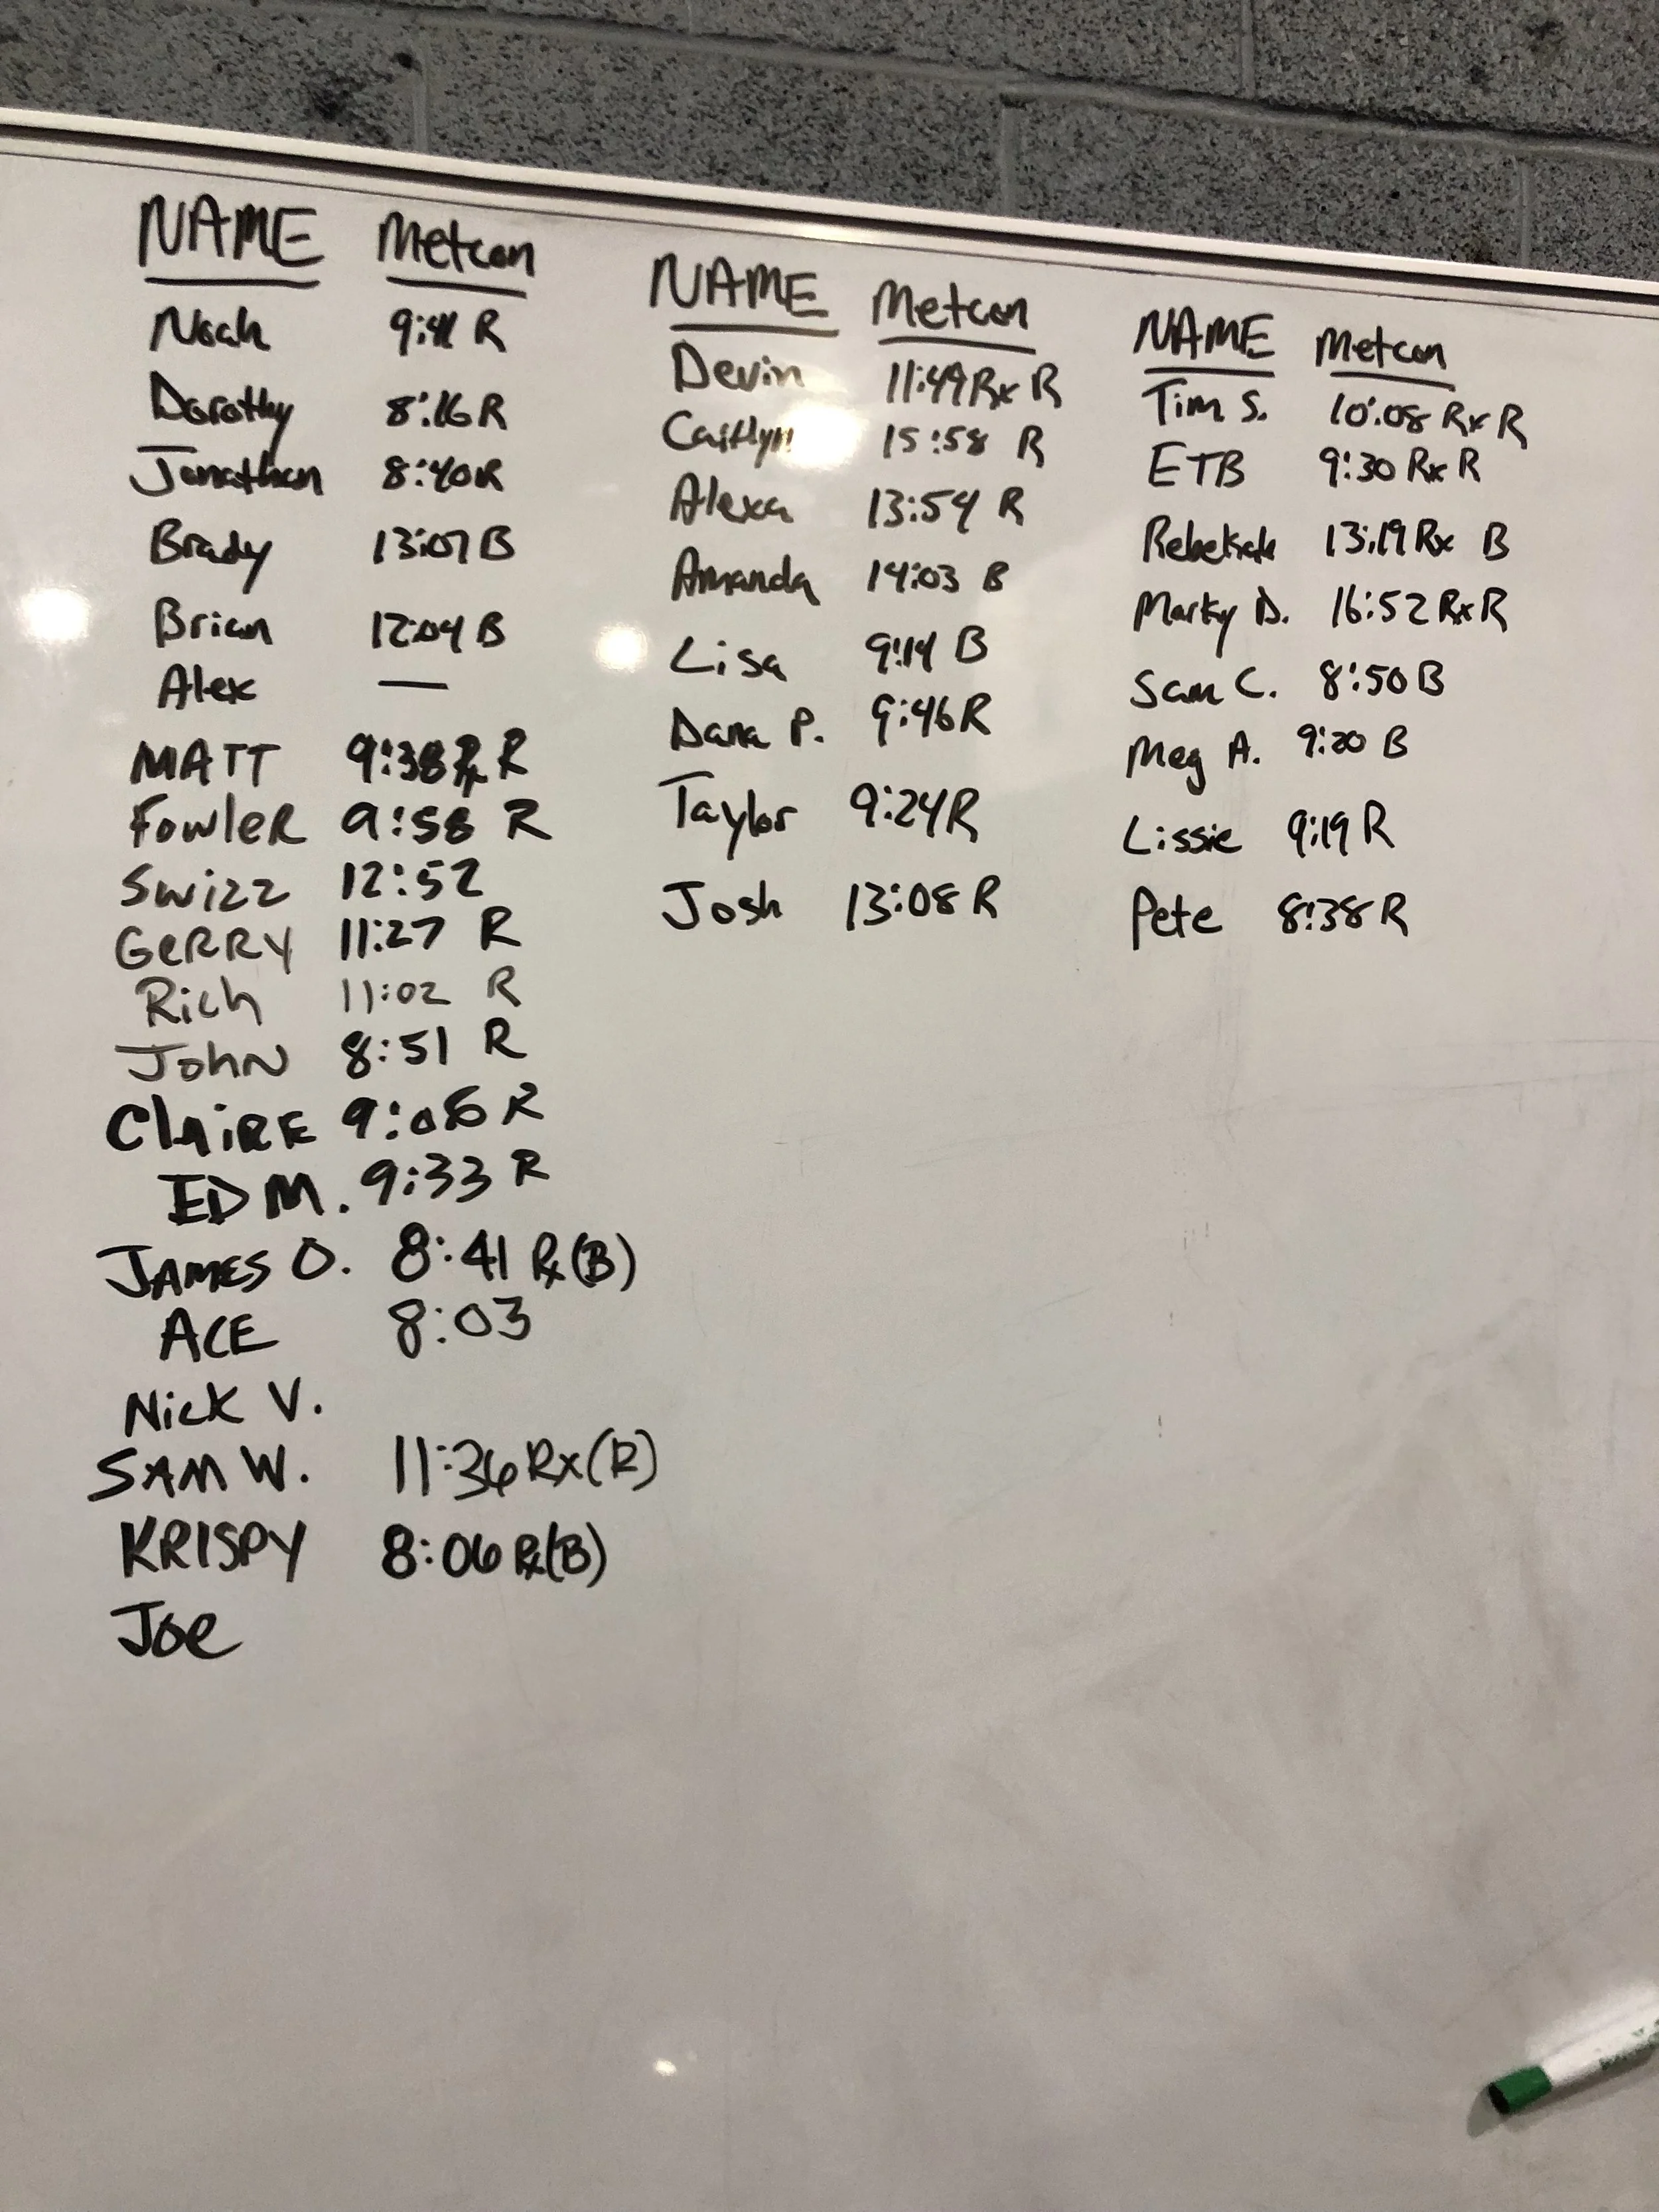 NAME Metcon
Noah 9:41 R
Dorothy 8:16 R
Jonathan 8:40 R
Brady 13:07 B
Brian 12:04 B
Alex —
MATT 9:38 Rx R
FowleR 9:58 R
Swizz 12:52
GeRRY 11:27 R
Rich 11:02 R
JohN 8:51 R
ClAiRE 9:08 R
ED M. 9:33 R
JAMES O. 8:41 Rx (B)
ACE 8:03
Nick V.
SAM W. 11:36 Rx (R)
KRISPY 8:06 Rx (B)
Joe
NAME Metcon
Devin 11:49 Rx R
Caitlyn 15:58 R
Alexa 13:54 R
Amanda 14:03 B
Lisa 9:14 B
Dana P. 9:46 R
Taylor 9:24 R
Josh 13:08 R
NAME Metcon
Tim S. 10:08 Rx R
ETB 9:30 Rx R
Rebekah 13:19 Rx B
Marky D. 16:52 Rx R
Sam C. 8:50 B
Meg A. 9:20 B
Lissie 9:19 R
Pete 8:38 R